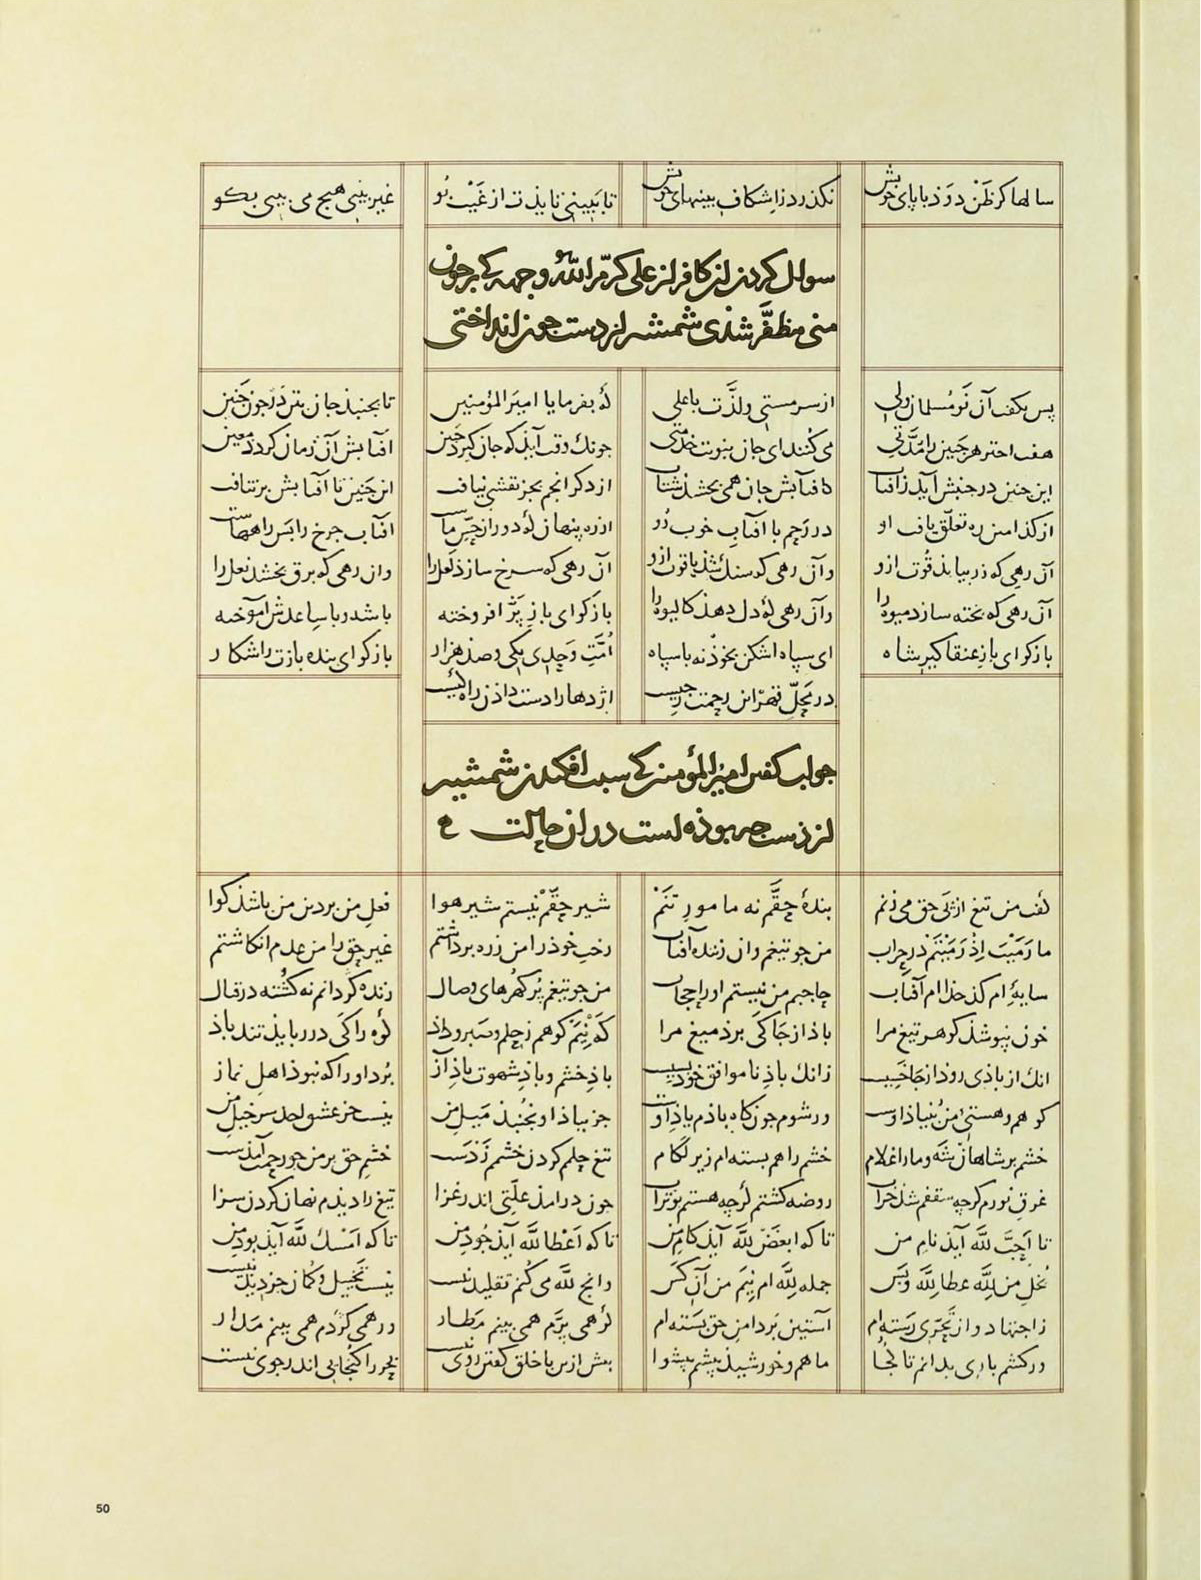 سالها کر ظن دوذ با پای خویش نکذرد زاشکاف بینیهای خویش تا ببینی نایذت از غیب بو غیر بینی هیچ می بینی بکو
سوال کردن آن کافر از علی کرّم الله وجهه که بر چون
منی مظفّر شذی شمشیر از دست چون انداختی
پس بکفت آن نو مسلمان ولی از سر مستی و لذّت با علی که بفرما یا امیر المؤمنین تا بجنبذ جان بتن در چون جنین
هفت اختر هر جنین را مدّتی می کنند ای جان بنوبت خدمتی چونک وقت آیذ که جان کیرد جنین آفتابش آن زمان کردد معین
این جنین در جنبش آیذ زآفتاب کافتابش جان همی بخشذ شتاب از دکر انجم بجز نقشی نیافت این جنین تا آفتابش بر نتافت
از کذامین ره تعلّق یافت او در رحم با آفتاب خوب رو از ره پنهان که دور از حسّ ماست آفتاب چرخ را بس راههاست
آن رهی که زر بیابذ قوت ازو وآن رهی که سنک شذ یاقوت ازو آن رهی که سرخ سازذ لعل را وان رهی که برق بخشذ نعل را
آن رهی که پخته سازد میوه را وآن رهی که دل دهذ کالیوه را باز کو ای باز پرّ افروخته با شه و با ساعدش آموخته
باز کو ای باز عنقا کیر شاه ای سپاه اشکن بخوذ نه با سپاه امّت وحدی یکی و صذ هزار باز کو ای بنده بازت را شکار
در محلّ قهر این رحمت ز چیست اژدها را دست داذن راه کیست
جواب کفتن امیر المؤمنین که سبب افکندن شمشیر
از دست چه بوذه است در آن حالت
کفت من تیغ از پی حق می زنم بندهٔ حقّم نه مامور تنم شیر حقّم نیستم شیر هوا فعل من بر دین من باشذ کوا
ما رَمَیْتَ اِذْ رَمَیْتَم در حراب من چو تیغم وان زننده آفتاب رخت خوذ را من ز ره برداشتم غیر حق را من عدم انکاشتم
سایهٔ ام کذخذاام آفتاب حاجبم من نیستم او را حجاب من چو تیغم پر کهرهای وصال زنده کردانم نه کشته در قتال
خون نپوشذ کوهر تیغ مرا باذ از جا کی برذ میغ مرا که نیم کوهم ز حلم و صبر و داذ کوه را کی در ربایذ تند باذ
انک از باذی روذ از جا خسیست زانک باذ ناموافق خوذ بسیست باذ خشم و باذ شهوت باذ آز برد او را که نبوذ اهل نماز
کوهم و هستی من بنیاذ اوست ور شوم چون کاه باذم یاذ اوست جز بباذ او نجنبذ میل من نیست جز عشق احد سرخیل من
خشم بر شاهان شه و ما را غلام خشم را هم بسته ام زیر لکام تیغ حلمم کردن خشمم زدست خشم حق بر من چو رحمت آمذست
غرق نورم کرچه سقفم شذ خراب روضه کشتم کرچه هستم بو تراب چون درامذ علّتی اندر غزا تیغ را دیذم نهان کردن سزا
تا اَحَبَّ لله آیذ نام من تا که ابغض لله آیذ کام من تا که اعطا لله آیذ جود من تا که امسک لله آیذ بود من
بخل من لله عطا لله و بس جمله لله ام نیم من آن کس وانچ لله می کنم تقلید نیست نیست تخییل و کمان جز دید نیست
ز اجتهاد و از تحرّی رسته ام آستین بر دامن حق بسته ام کر همی پرّم همی بینم مطار ور همی کردم همی بینم مدار
ور کشم باری بدانم تا کجا ماهم و خورشیذ پیشم پیشوا بیش ازین با خلق کفتن روی نیست بحر را کنجایی اندر جوی نیست
50